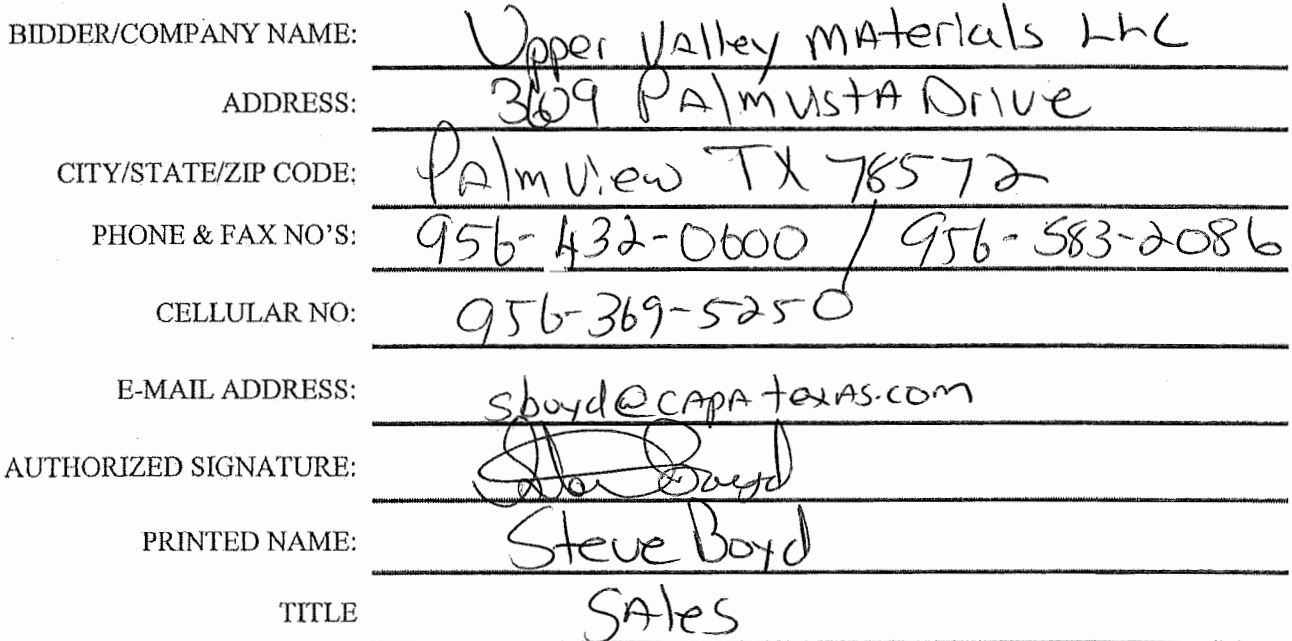 BIDDER/COMPANY NAME: Upper Valley Materials LLC
ADDRESS: 3609 Palm Vista Drive
CITY/STATE/ZIP CODE: Palmview TX 78572
PHONE & FAX NO'S: 956-432-0600 / 956-583-2086
CELLULAR NO: 956-369-5250
E-MAIL ADDRESS: sboyd@capatexas.com
AUTHORIZED SIGNATURE: Steve Boyd
PRINTED NAME: Steve Boyd
TITLE Sales